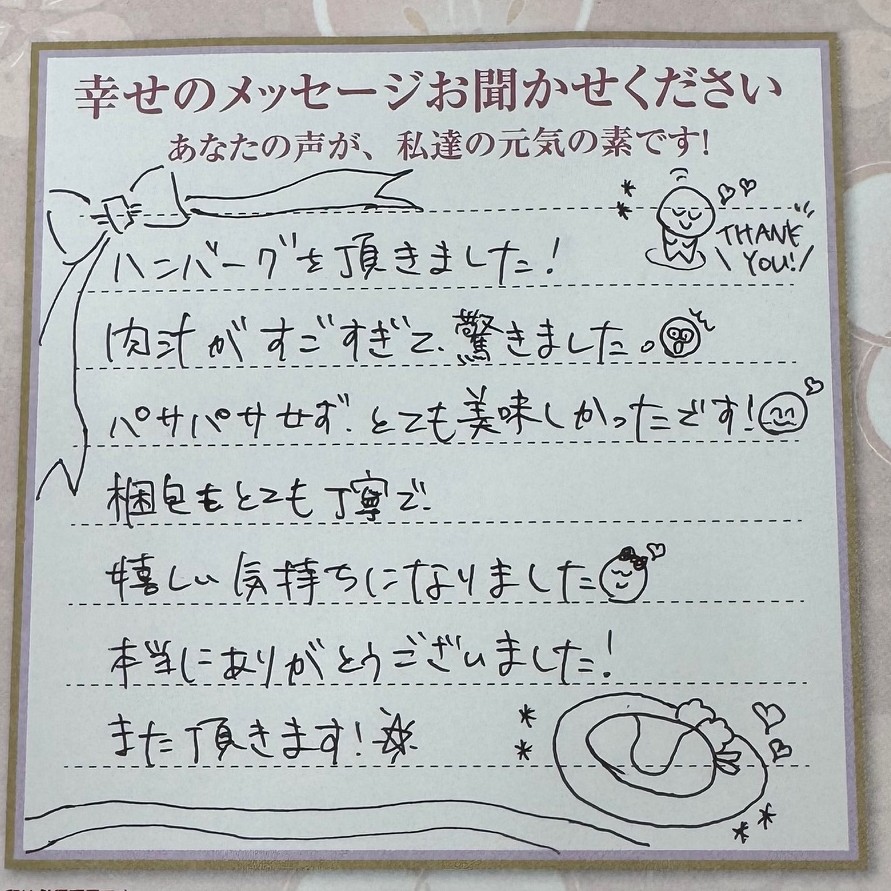 幸せのメッセージお聞かせください
あなたの声が、私達の元気の素です!
THANK
YOU!
ハンバーグを頂きました!
肉汁がすごすぎて、驚きました。
パサパサせず、とても美味しかったです!
梱包もとても丁寧で、
嬉しい気持ちになりました
本当にありがとうございました!
また頂きます!